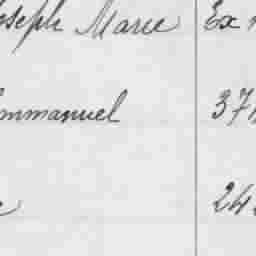 Joseph Marie Ex
Emmanuel 37
24